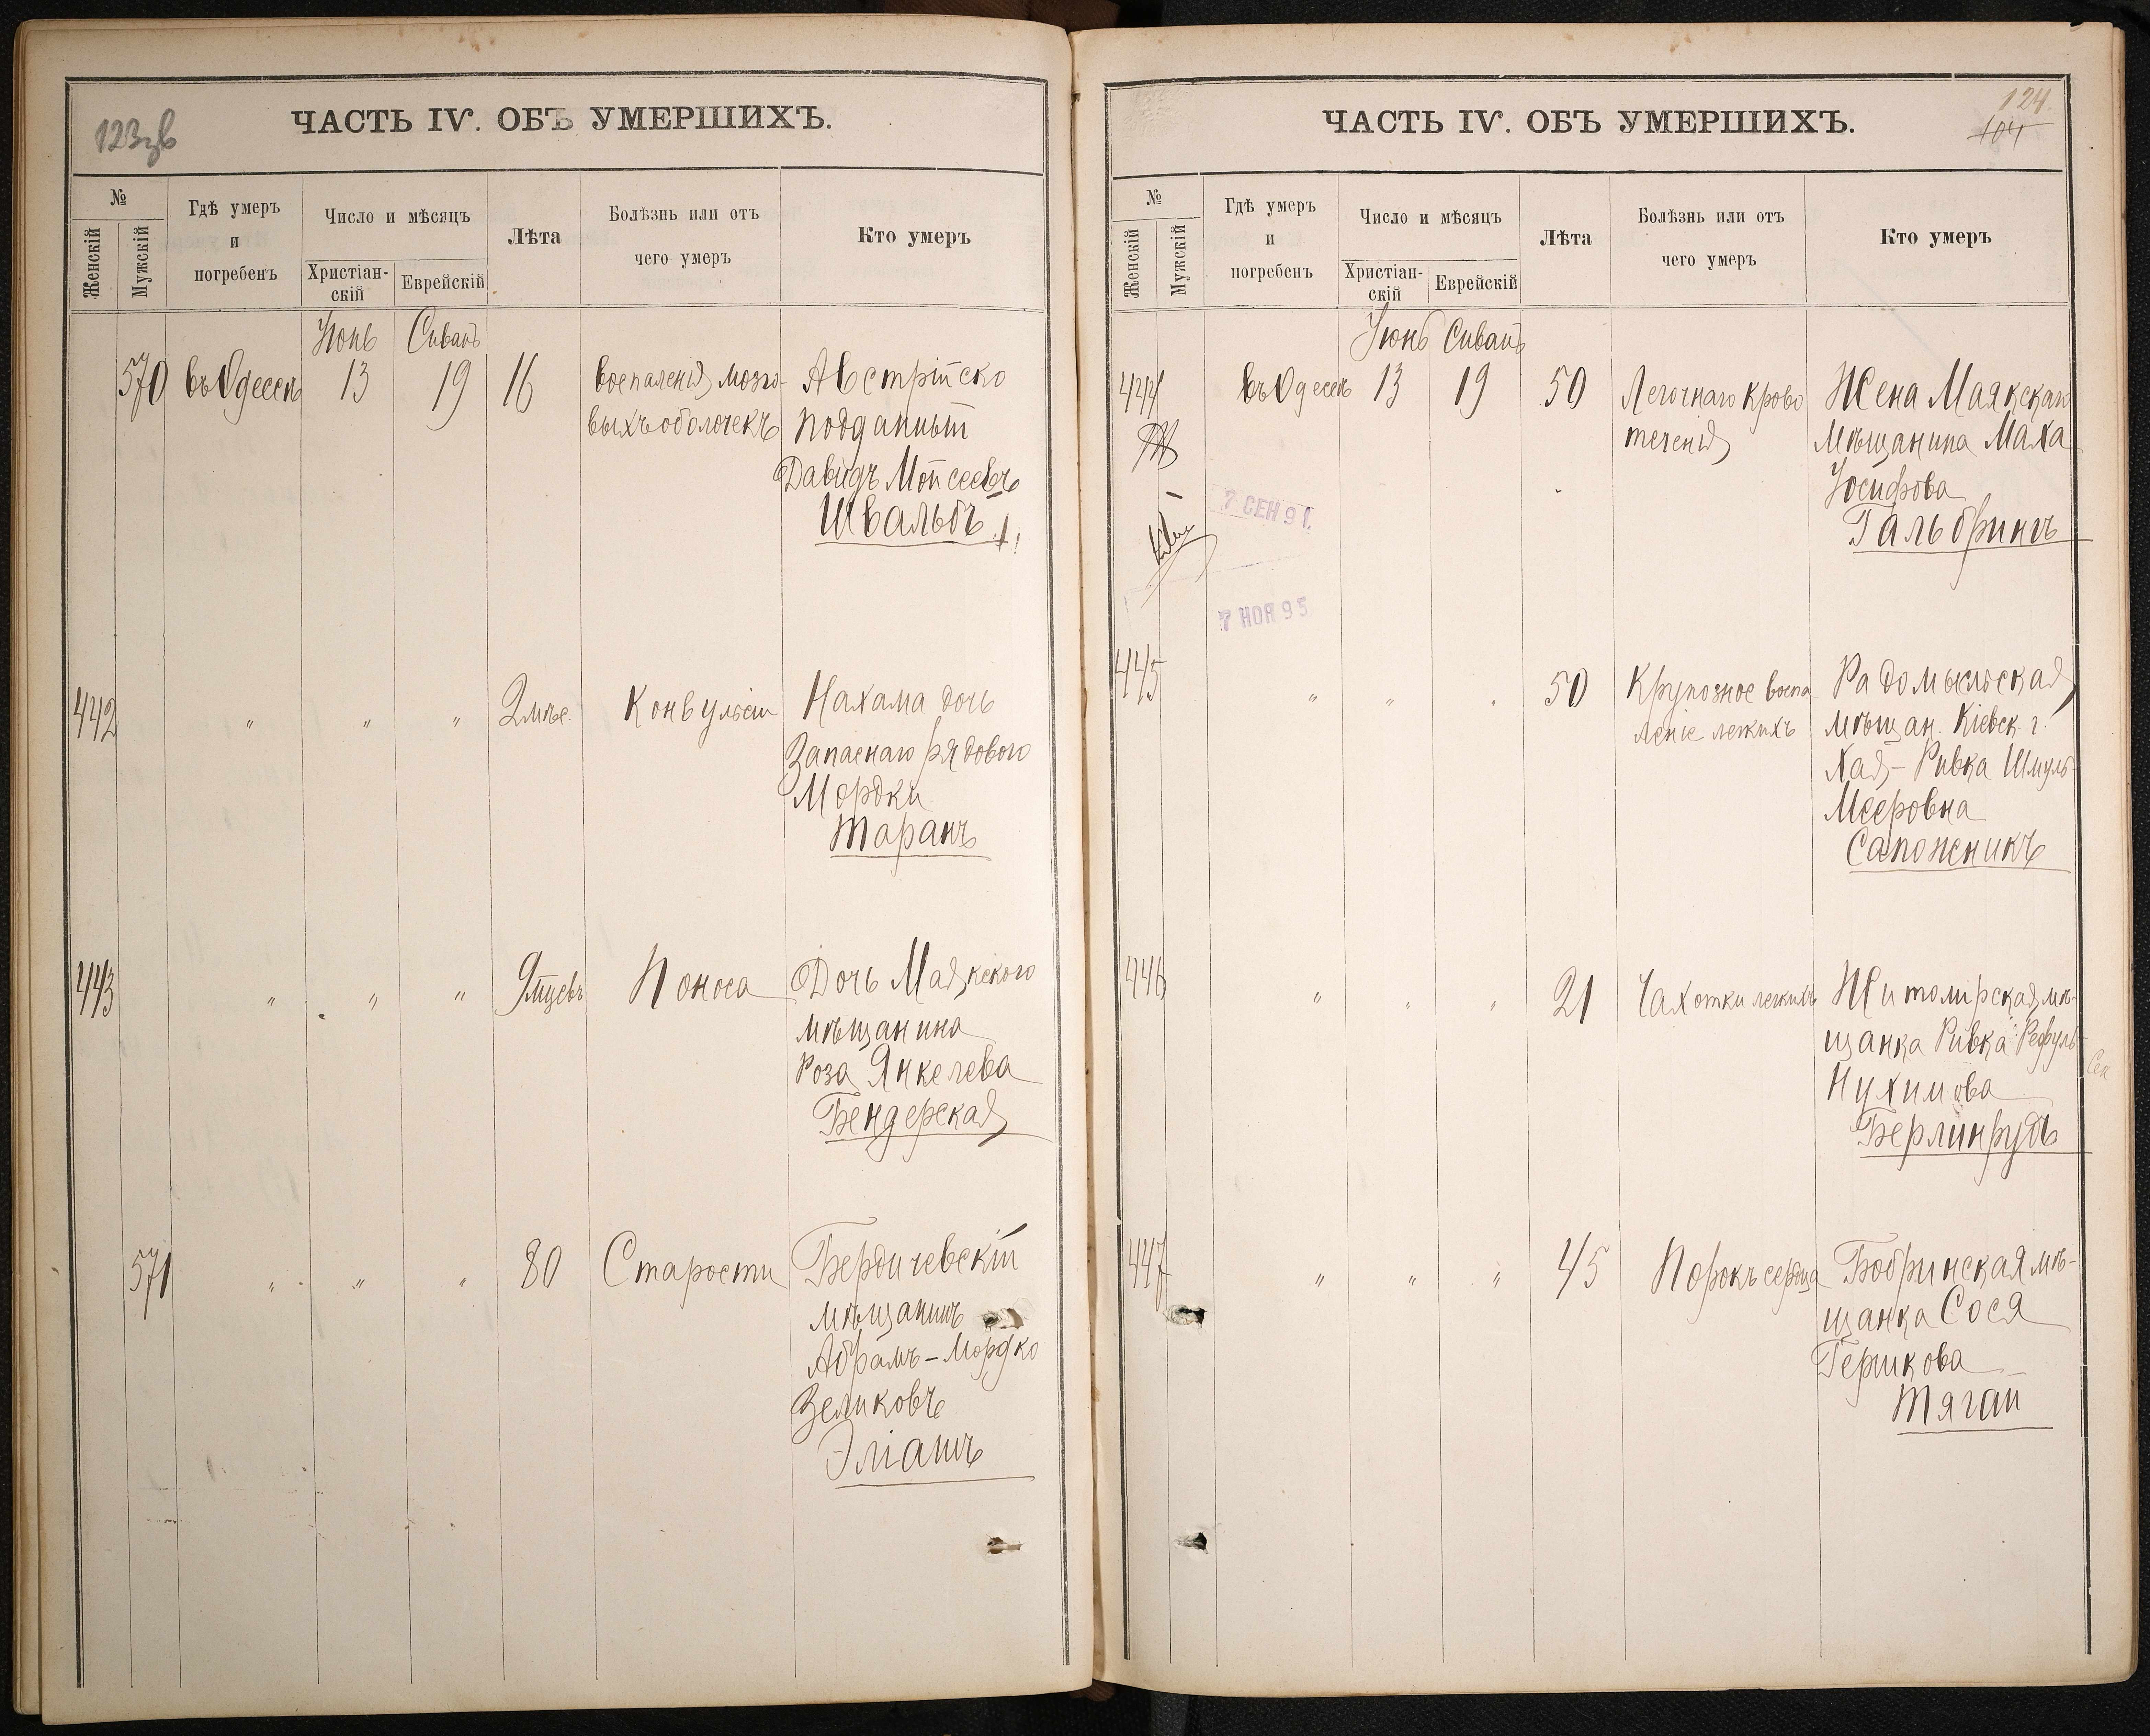 123зв
ЧАСТЬ IV. ОБЪ УМЕРШИХЪ.
№
Женскій
Мужскій
Гдѣ умеръ
и
погребенъ
Число и мѣсяцъ
Христіан-
скій
Еврейскій
Лѣта
Болѣзнь или отъ
чего умеръ
Кто умеръ
Іюнь Сиванъ
570 въ Одессѣ 13 19 16 воспаленія мозго- Австрійско
выхъ оболочекъ подданный
Давидъ Мойсеевъ
Швальбъ
442 " " " 2 мѣс. Конвульсіи Нахама дочь
Запаснаго рядового
Мордки
Таранъ
443 " " " 9 мцевъ Поноса Дочь Маякского
мѣщанина
Роза Янкелева
Бендерская
571 " " " 80 Старости Бердичевскій
мѣщанинъ
Абрамъ-Мордко
Зеликовъ
Эліашъ
124.
104
ЧАСТЬ IV. ОБЪ УМЕРШИХЪ.
№
Женскій
Мужскій
Гдѣ умеръ
и
погребенъ
Число и мѣсяцъ
Христіан-
скій
Еврейскій
Лѣта
Болѣзнь или отъ
чего умеръ
Кто умеръ
Іюнь Сиванъ
444 въ Одессѣ 13 19 50 Легочнаго крово Жена Маякскаго
теченія мѣщанина Маха
Іосифова
Гальбринъ
7 СЕН 91.
7 НОЯ 95
445 " " " 50 Крупозное воспа- Радомысльская
леніе легкихъ мѣщан. Кіевск. г.
Хая-Ривка Шмуль-
Мееровна
Сапожникъ
446 " " " 21 Чахотки легкихъ Житомірская мѣ-
щанка Ривка Рефуль-
Нухимова
Берлинрудъ
447 " " " 45 Порокъ сердца Бобринская мѣ-
щанка Сося
Гершкова
Тягай